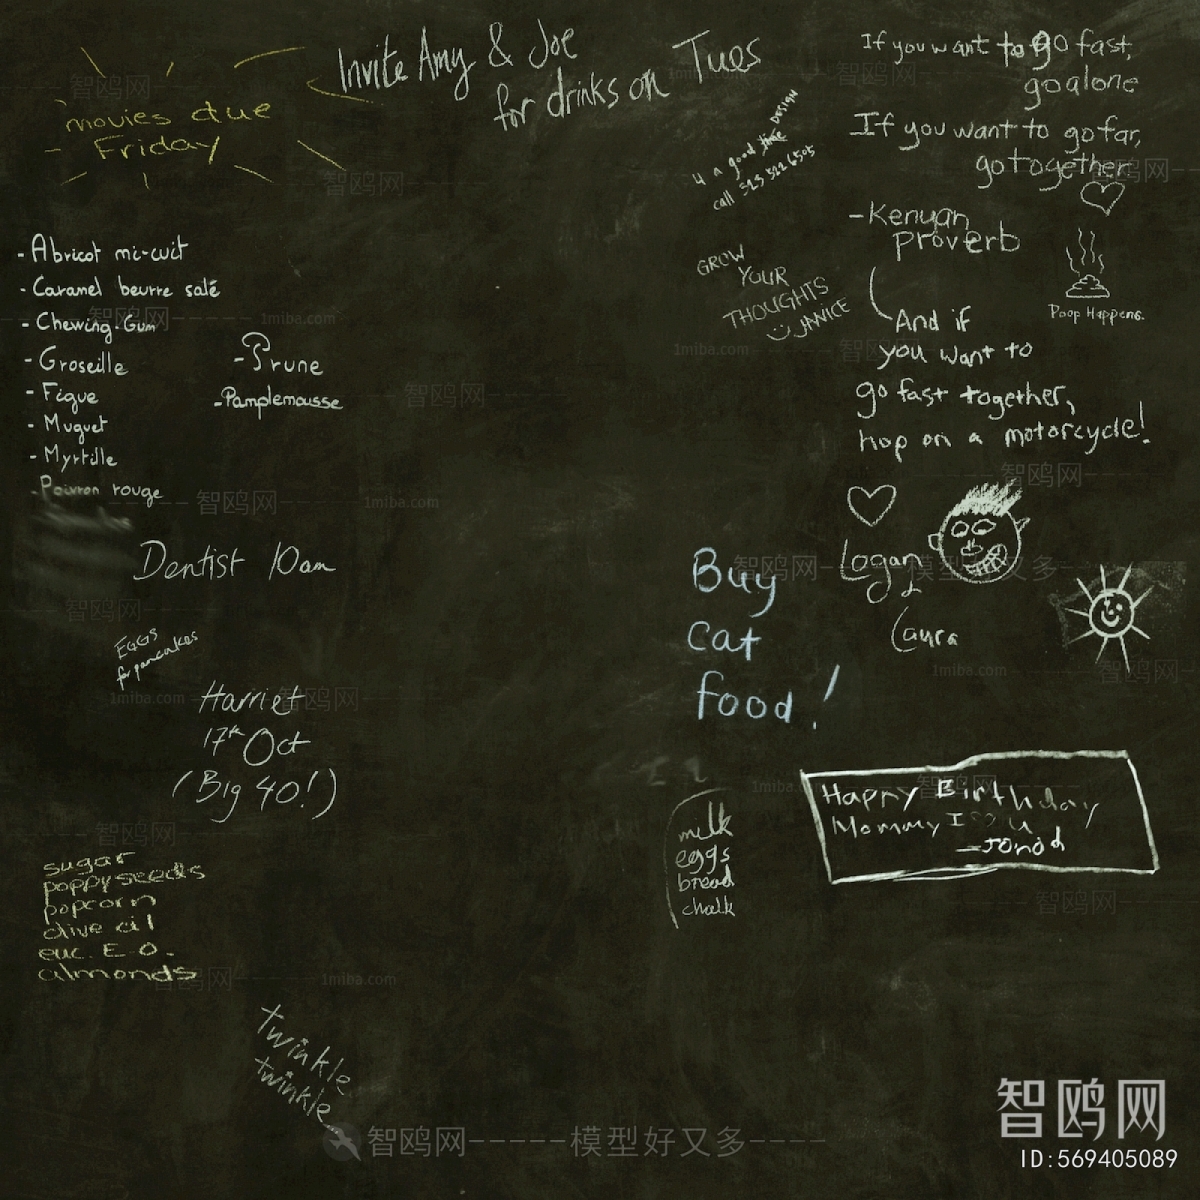 movies due
Friday
Invite Amy & Joe
for drinks on Tues
4 a good time DESIGN
call 523 522 6505
If you want to go fast,
go alone
If you want to go far,
go together.
-Kenyan
proverb
Poop Happens.
And if
you want to
go fast together,
hop on a motorcycle!
GROW
YOUR
THOUGHTS
JANICE
- Abricot mi-cuit
- Caramel beurre salé
- Chewing-Gum
- Groseille
- Figue
- Muguet
- Myrtille
- Poivron rouge
- Prune
- Pamplemousse
Dentist 10am
EGGS
for pancakes
Harriet
17th Oct
(Big 40!)
Logan
&
Laura
Buy
cat
food!
Happy Birthday
Mommy I
milk
eggs
bread
chalk
sugar
poppyseeds
popcorn
olive oil
euc. E.O.
almonds
twinkle
twinkle
智鸥网-----模型好又多----
智鸥网
ID:569405089
1miba.com